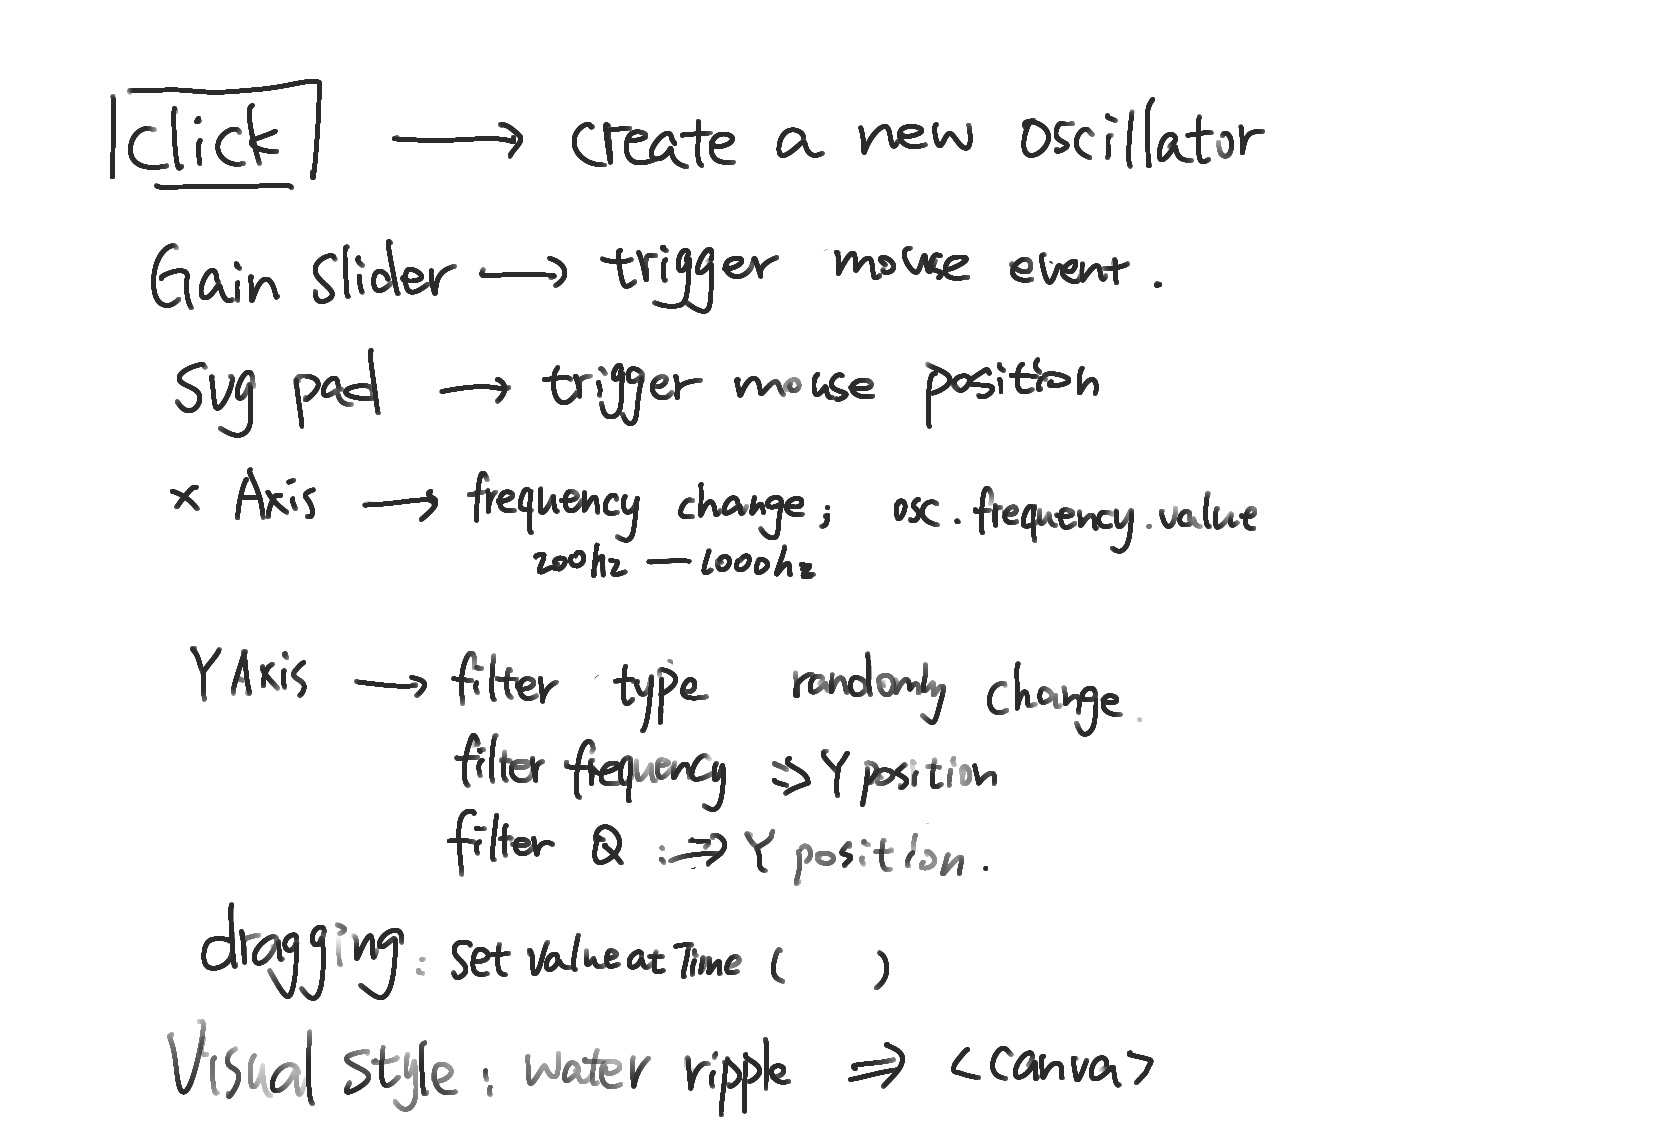 click → create a new oscillator
Gain slider → trigger mouse event.
Svg pad → trigger mouse position
x Axis → frequency change; osc.frequency.value
200hz — 1000hz
Y Axis → filter type randomly change.
filter frequency => Y position
filter Q :=> Y position.
dragging: set ValueatTime ( )
Visual style: water ripple => <canva>